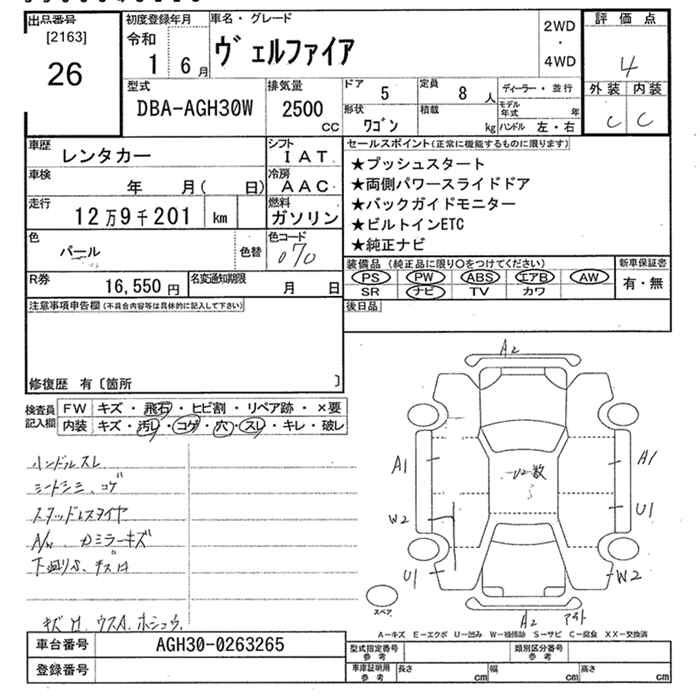 出品番号
[2163]
26
初度登録年月
令和
1 6月
車名・グレード
ヴェルファイア
2WD
・
4WD
評価点
4
外装 内装
C C
型式
DBA-AGH30W
排気量
2500
CC
ドア 5
定員 8 人
ディーラー・並行
形状 ワゴン
積載 kg
モデル年式 年
ハンドル 左・右
車歴 レンタカー
シフト IAT
車検 年 月( 日)
冷房 AAC
走行 12万9千201 km
燃料 ガソリン
色 パール
色替
色コード 070
R券 16,550円
名変通知期限 月 日
セールスポイント(正常に機能するものに限ります)
★プッシュスタート
★両側パワースライドドア
★バックガイドモニター
★ビルトインETC
★純正ナビ
装備品(純正品に限り○をつけてください)
PS PW ABS エアB AW
SR ナビ TV カワ
新車保証書
有・無
注意事項申告欄(不具合内容等は具体的に記入して下さい)
後日品
修復歴 有〔箇所 〕
検査員記入欄
FW キズ・飛石・ヒビ割・リペア跡・×要
内装 キズ・汚レ・コゲ・穴・スレ・キレ・破レ
ハンドルスレ
シートシミ、コゲ
スタッドレスタイヤ
A/W、ミラーキズ
A2
A1
A1
U2数
W2
U1
U1
W2
A2
スペア
A-キズ E-エクボ U-凹み W-補修跡 S-サビ C-腐食 XX-交換済
車台番号 AGH30-0263265
登録番号
型式指定番号 参考
類別区分番号 参考
車庫証明用 参考
長さ cm
幅 cm
高さ cm